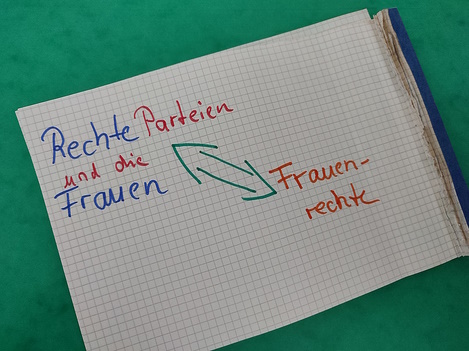 Rechte Parteien
und die
Frauen
Frauen-
rechte